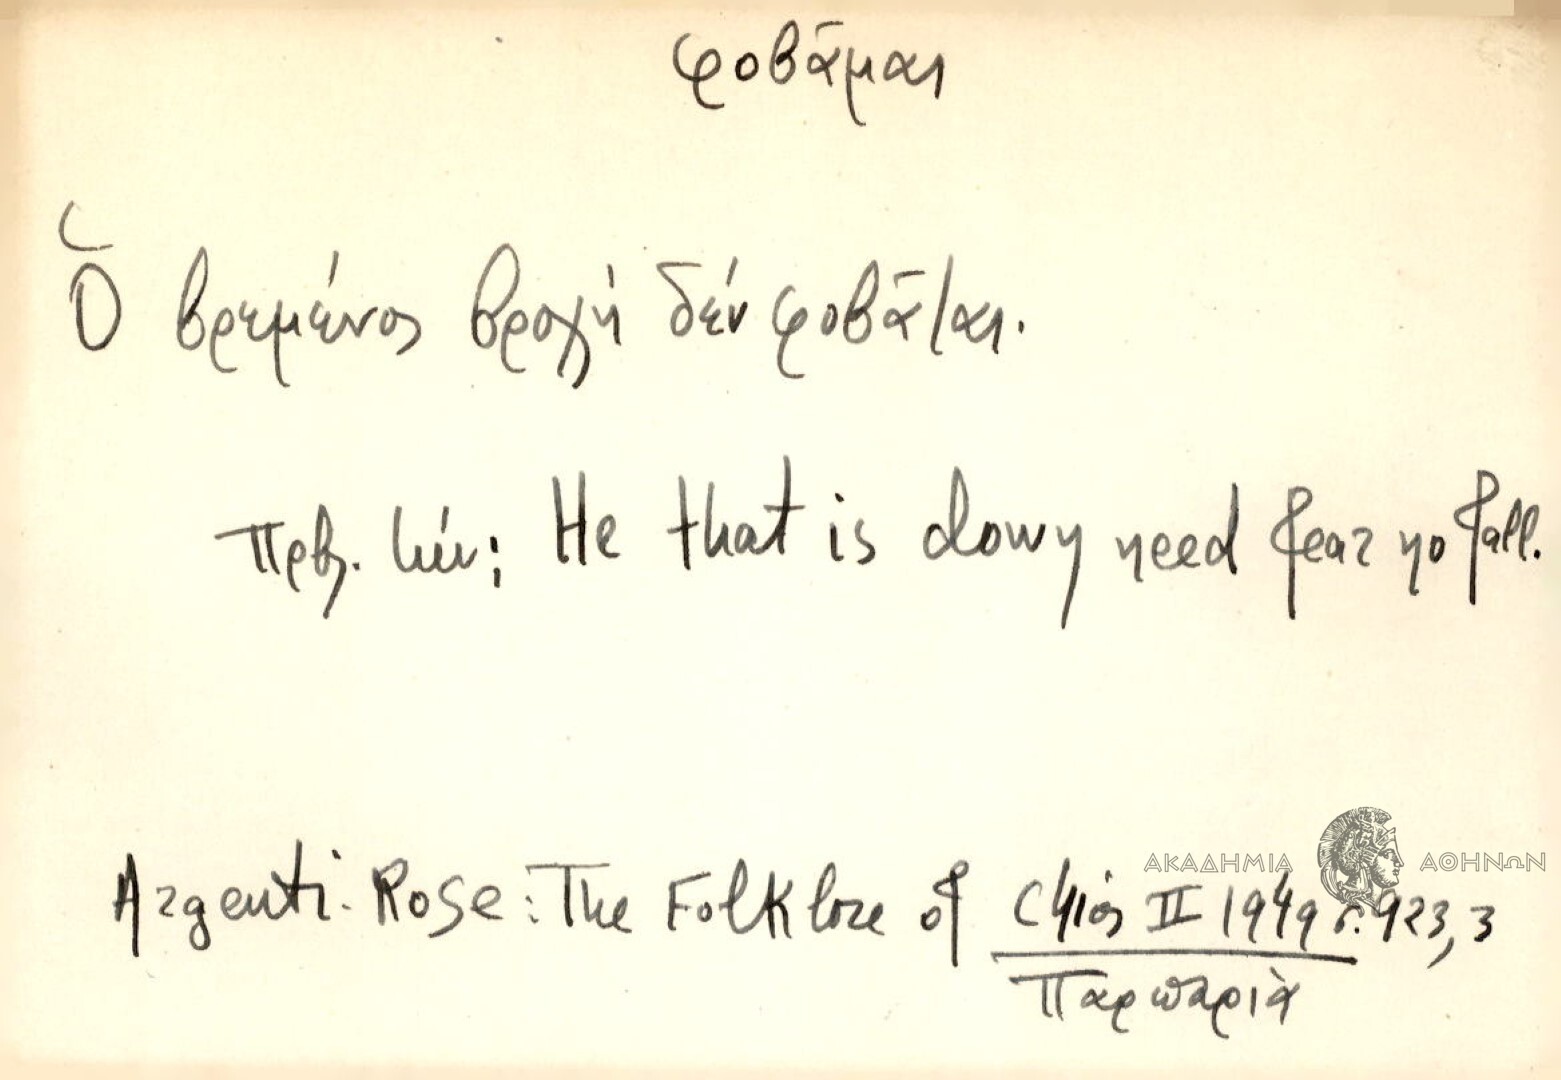 φοβᾶμαι
Ὁ βρεμένος βροχή δέν φοβᾶται.
Πρβλ. He that is down need fear no fall.
Argenti-Rose: The Folklore of Chios II 1949 σ. 923, 3
Παρπαριὰ
ΑΚΑΔΗΜΙΑ ΑΘΗΝΩΝ